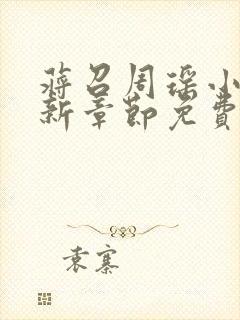 蒋召周瑶小
新章节免费
袁寨